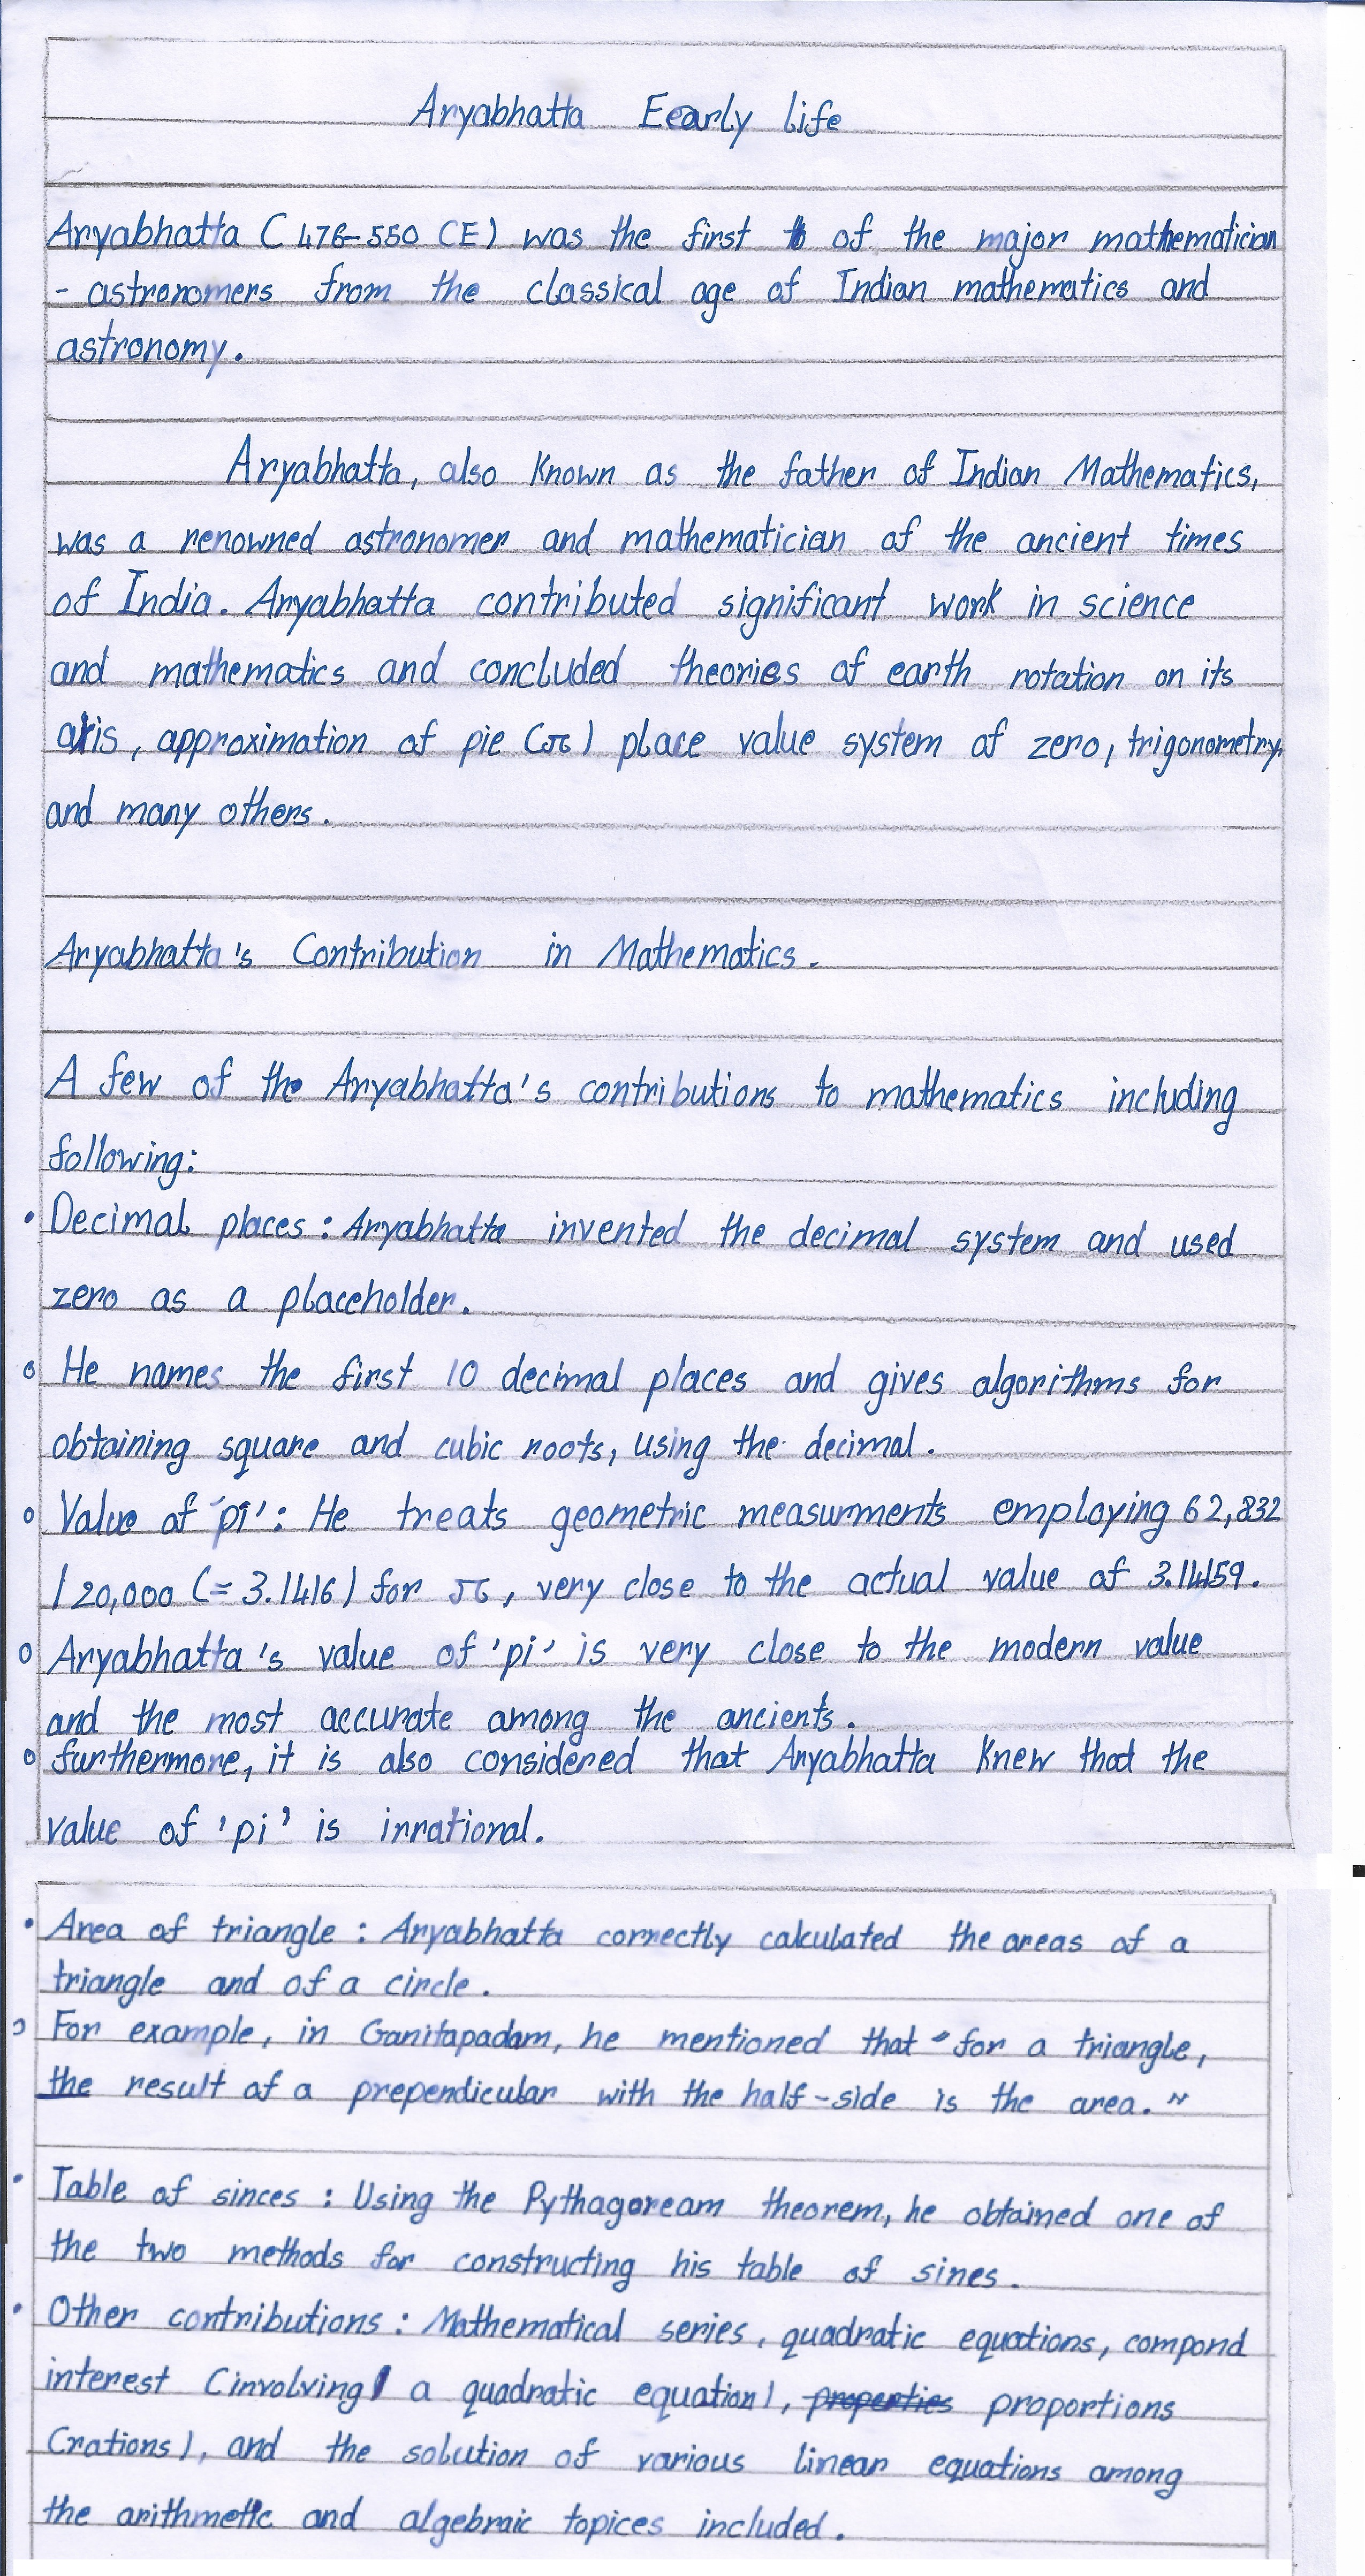 Aryabhatta Eearly life
Aryabhatta (476-550 CE) was the first of the major mathematician
- astronomers from the classical age of Indian mathematics and
astronomy.
Aryabhatta, also known as the father of Indian Mathematics,
was a renowned astronomer and mathematician of the ancient times
of India. Aryabhatta contributed significant work in science
and mathematics and concluded theories of earth rotation on its
axis, approximation of pie (π) place value system of zero, trigonometry,
and many others.
Aryabhatta's Contribution in Mathematics.
A few of the Aryabhatta's contributions to mathematics including
following:
• Decimal places : Aryabhatta invented the decimal system and used
zero as a placeholder.
o He names the first 10 decimal places and gives algorithms for
obtaining square and cubic roots, using the decimal.
o Value of 'pi' : He treats geometric measurments employing 62,832
/ 20,000 (= 3.1416) for π, very close to the actual value of 3.14159.
o Aryabhatta's value of 'pi' is very close to the modern value
and the most accurate among the ancients.
o furthermore, it is also considered that Aryabhatta knew that the
value of 'pi' is irrational.
• Area of triangle : Aryabhatta correctly calculated the areas of a
triangle and of a circle.
o For example, in Ganitapadam, he mentioned that "for a triangle,
the result of a prependicular with the half-side is the area."
• Table of sinces : Using the Pythagoream theorem, he obtained one of
the two methods for constructing his table of sines.
• Other contributions : Mathematical series, quadratic equations, compond
interest (involving a quadratic equation), properties proportions
(rations), and the solution of various linear equations among
the arithmetic and algebraic topices included.